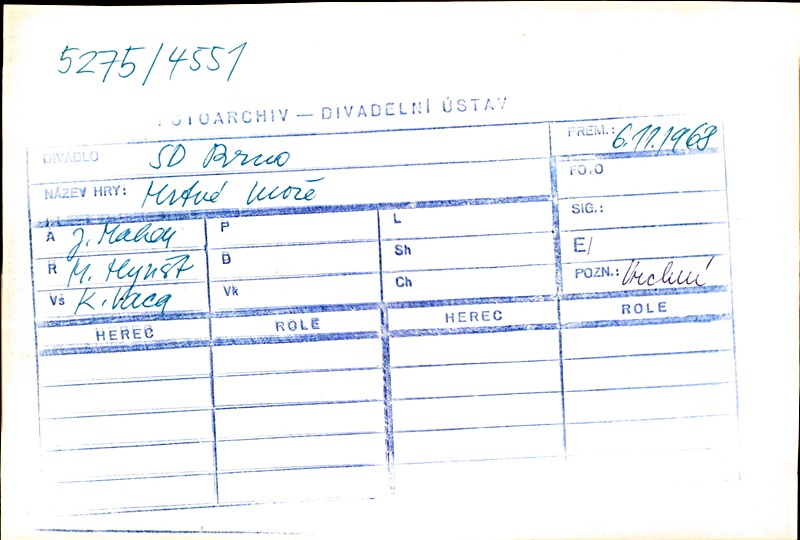 5275/4551
FOTOARCHIV — DIVADELNÍ ÚSTAV
DIVADLO SD Brno
PREM.: 6.11.1968
NÁZEV HRY: Mrtvé moře
FOTO
SIG.:
E/
POZN.: Vrchní
A J. Mahen
P
L
R M. Hynšt
D
Sh
Vš K. Vaca
Vk
Ch
HEREC ROLE HEREC ROLE